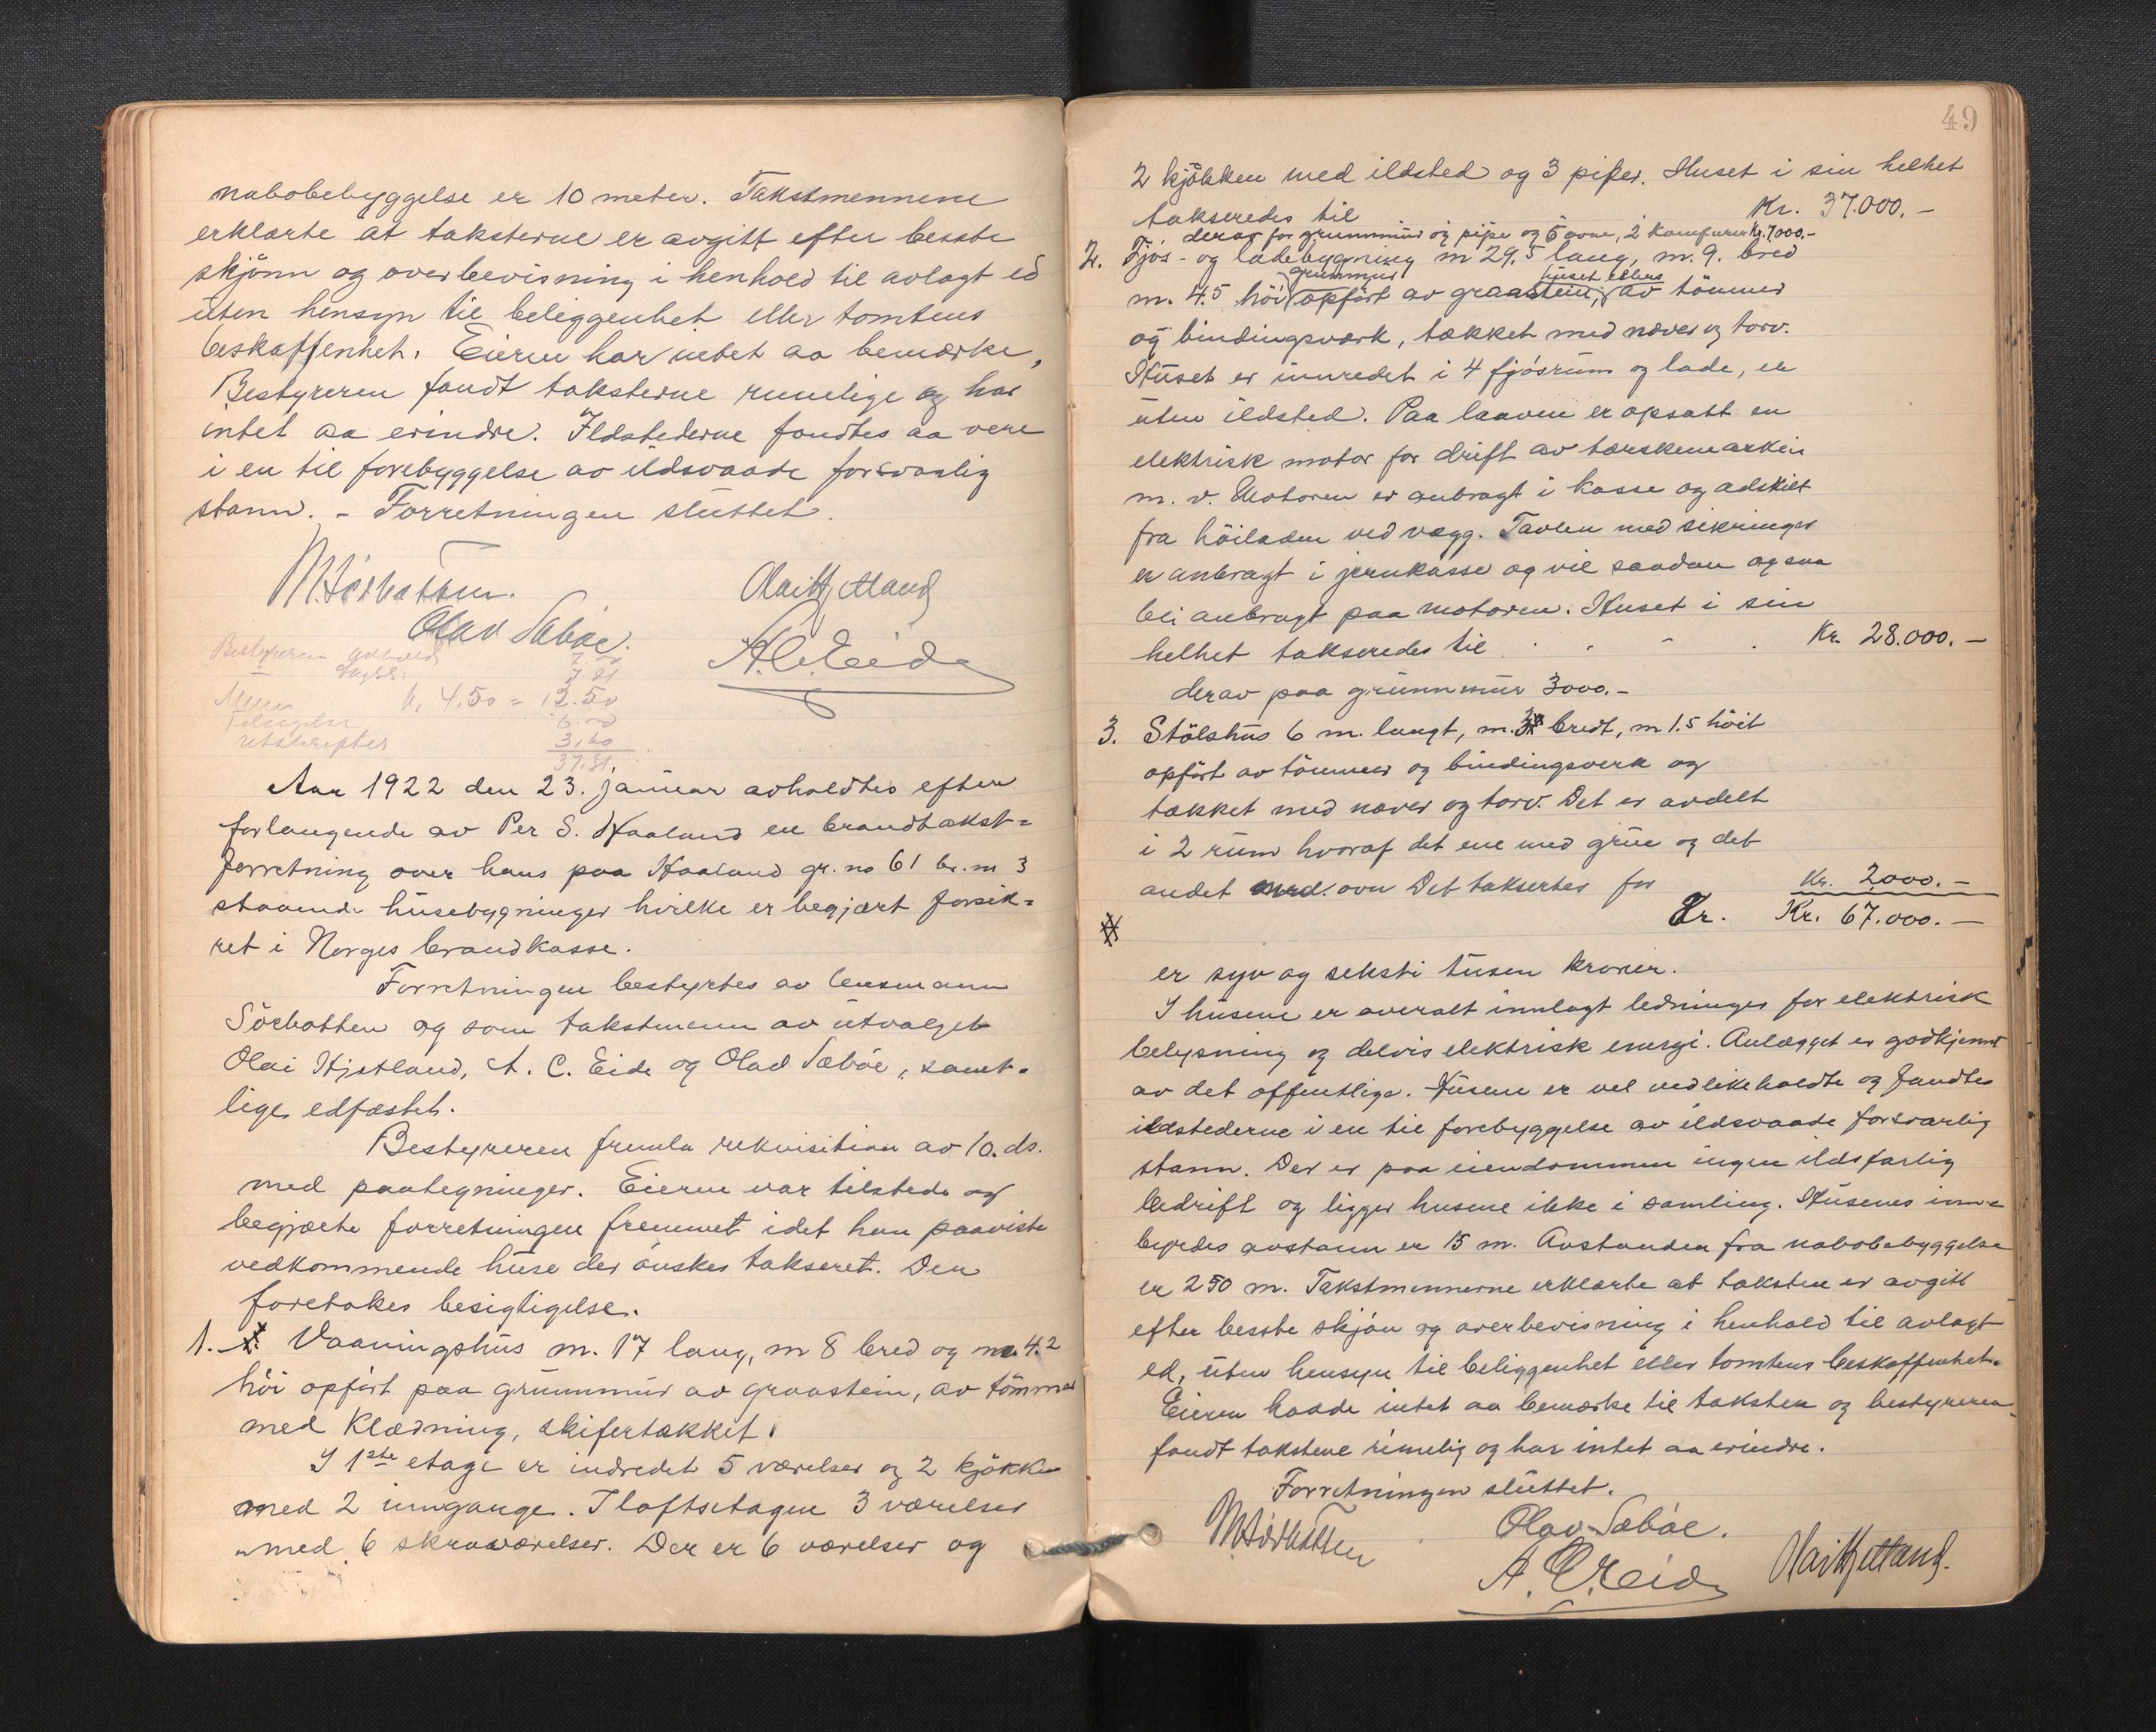 nabobebyggelse er 10 meter. Takstmennene
erklærte at taksterne er avgitt efter besste
skjönn og overbevisning i henhold til avlagt ed
uten hensyn til beliggenhet eller tomtens
beskaffenhet. Eieren har intet aa bemærke,
Bestyreren fandt taksterne rimelige og har
intet aa erindre. Ildstederne fandtes aa være
i en til forebyggelse av ildsvaade forsvarlig
stann. - Forretningen sluttet.
Olai Hjetland
Olav Sæböe.
A.C. Eide
Bestyreren
4,50 = 12.50
6.00
utskrifter 3,60
37.81.
Aar 1922 den 23. januar avholdtes efter
forlangende av Per S. Haaland en brandtakst=
forretning over hans paa Haaland gr. no 61 br. no 3
staaende husebygninger hvilke er begjært forsik=
ret i Norges brandkasse.
Forretningen bestyrtes av lensmann
Sörhatten og som takstmenn av utvalget
Olai Hjetland, A. C. Eide og Olav Sæböe, samt-
lige edfæstet.
Bestyreren fremla rekvisition av 10. ds.
med paategninger. Eieren var tilstede og
begjærte forretningen fremmet idet han paaviste
vedkommende huse der önskes taksert. Den
foretokes besigtigelse.
1. Vaaningshus m. 17 lang, m 8 bred og m. 4.2
höi opfört paa grunnmur av graastein, av tömmer
med klædning, skifertækket.
I 1ste etage er indredet 5 værelser og 2 kjökken
med 2 inngange. I loftsetagen 3 værelser
med 6 skraaværelser. Der er 6 værelser og
49
2 kjökken med ildsted og 3 piper. Huset i sin helhet
takseredes til Kr. 37.000.-
derav for grunnmur og pipe og 5 ovne, 2 komfurer Kr. 7000.-
2. Fjös- og ladebygning m 29.5 lang, m. 9. bred
grunnmur huset ellers
m. 4.5 höi opfört av graastein, av tömmer
og bindingsværk, tækket med næver og torv.
Huset er innredet i 4 fjösrum og lade, er
uten ildsted. Paa laaven er opsatt en
elektrisk motor for drift av tærskemaskin
m. v. Motoren er anbragt i kasse og adskilt
fra höiladen ved vægg. Tavlen med sikringer
er anbragt i jernkasse og vil saadan ogsaa
bli anbragt paa motoren. Huset i sin
helhet takseredes til Kr. 28.000.-
derav paa grunnmur 3000.-
3. Stölshus 6 m. langt, m. bredt, m 1.5 höit
opfört av tömmer og bindingsverk og
tækket med næver og torv. Det er avdelt
i 2 rum hvoraf det ene med grue og det
andet med. ovn Det taksertes for Kr. 2,000.-
Kr. Kr. 67.000.-
er syv og seksti tusen kroner.
I husene er overalt innlagt ledninger for elektrisk
belysning og delvis elektrisk energi. Anlægget er godkjennt
av det offentlige. Husene er vel vedlikeholdte og fandtes
ildstederne i en til forebyggelse av ildsvaade forsvarlig
stann. Der er paa eiendommen ingen ildsfarlig
bedrift og ligger husene ikke i samling. Husenes inn=
byrdes avstann er 15 m. Avstanden fra nabobebyggelse
er 250 m. Takstmennerne erklærte at taksten er avgitt
efter besste skjön og overbevisning i henhold til avlagt
ed, uten hensyn til beliggenhet eller tomtens beskaffenhet.
Eieren hadde intet aa bemærke til taksten og bestyreren
fandt takstene rimelig og har intet aa erindre.
Forretningen sluttet.
Olav Sæböe.
A. C. Eide
Olai Hjetland.